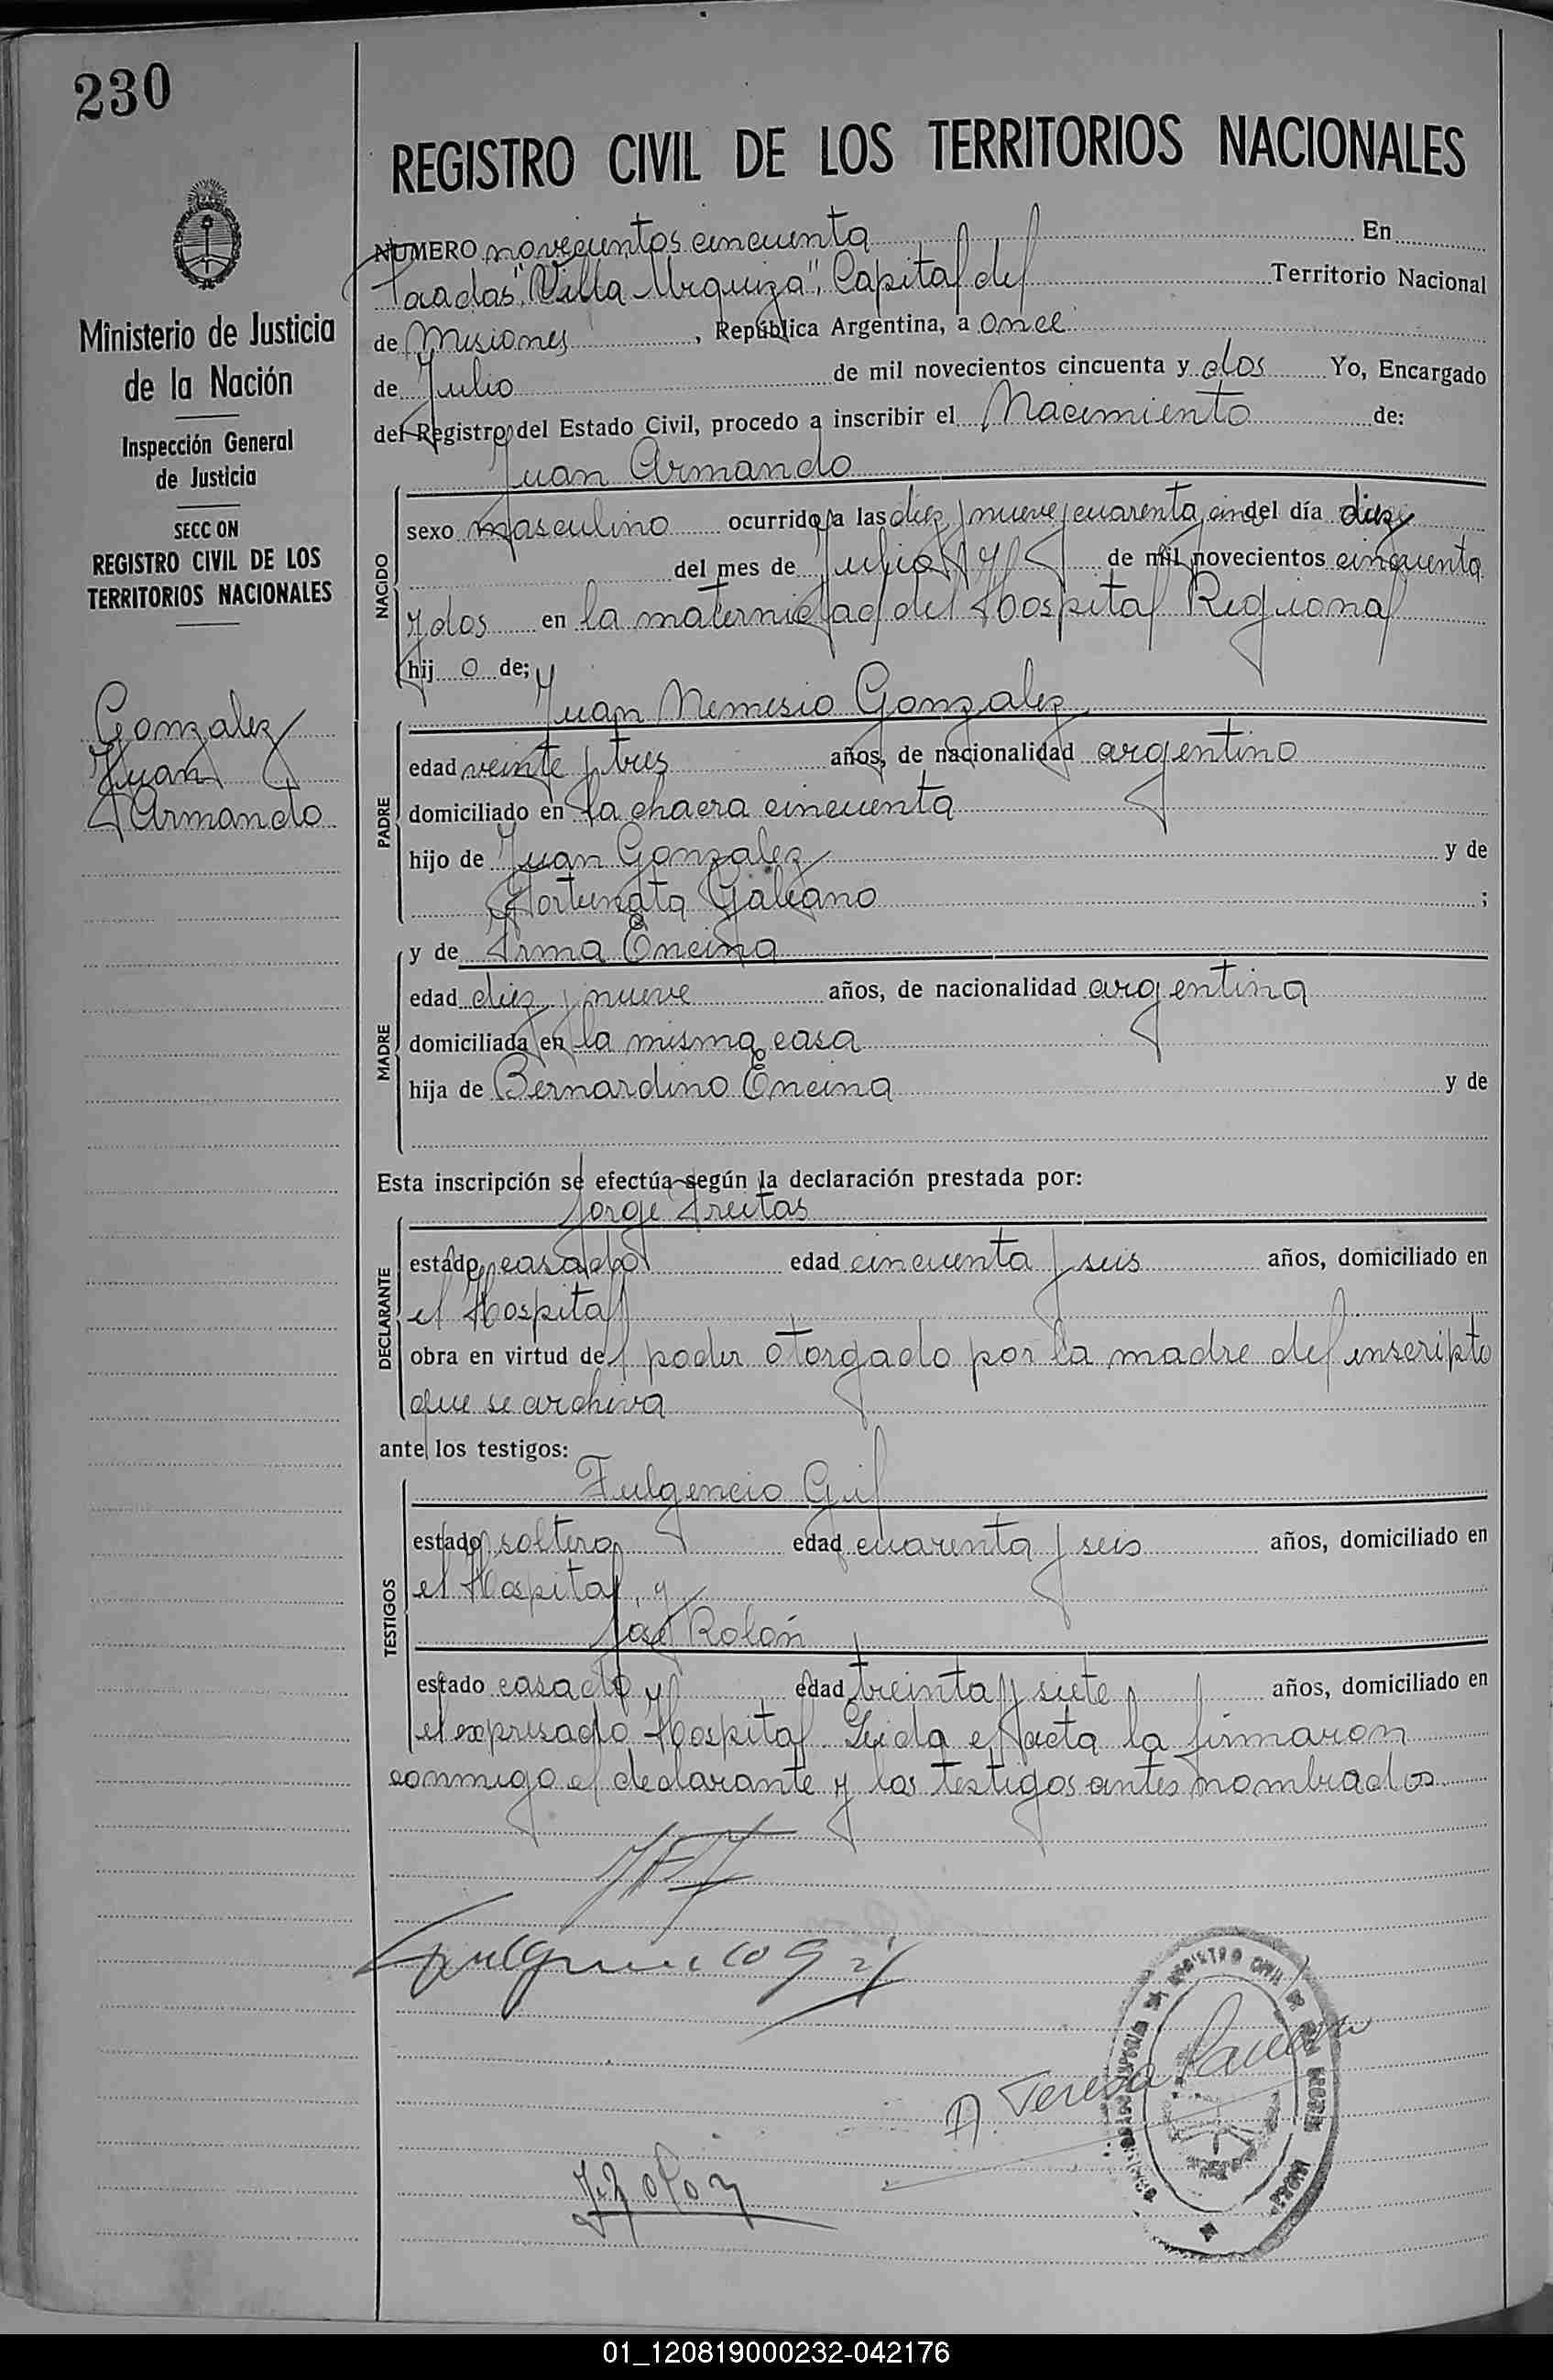 230
REGISTRO CIVIL DE LOS TERRITORIOS NACIONALES
Ministerio de Justicia
de la Nación
Inspección General
de Justicia
SECC ON
REGISTRO CIVIL DE LOS
TERRITORIOS NACIONALES
Gonzalez
Juan
Armando
NUMERO novecientos cincuenta En
Posadas "Villa Urquiza", Capital del Territorio Nacional
de Misiones, República Argentina, a once
de Julio de mil novecientos cincuenta y dos Yo, Encargado
del Registro del Estado Civil, procedo a inscribir el Nacimiento de:
Juan Armando
NACIDO
sexo masculino ocurrido a las diez y nueve y cuarenta del día diez
del mes de Julio de mil novecientos cincuenta
y dos en la maternidad del Hospital Regional
hij o de;
Juan Nemesio Gonzalez
PADRE
edad veinte y tres años, de nacionalidad argentino
domiciliado en la chacra cincuenta
hijo de Juan Gonzalez y de
Fortunata Galeano ;
MADRE
y de Irma Encina
edad diez y nueve años, de nacionalidad argentina
domiciliada en la misma casa
hija de Bernardino Encina y de
Esta inscripción se efectúa según la declaración prestada por:
Jorge Freitas
DECLARANTE
estado casado edad cincuenta y seis años, domiciliado en
el Hospital
obra en virtud del poder otorgado por la madre del inscripto
que se archiva
ante los testigos:
Fulgencio Gil
TESTIGOS
estado soltero edad cuarenta y seis años, domiciliado en
el Hospital, y
José Rolón
estado casado y edad treinta y siete años, domiciliado en
el expresado Hospital. Leida el acta la firmaron
conmigo el declarante y los testigos antes nombrados
Fulgencio Gil
A. Teresa
J. Rolon
01_120819000232-042176